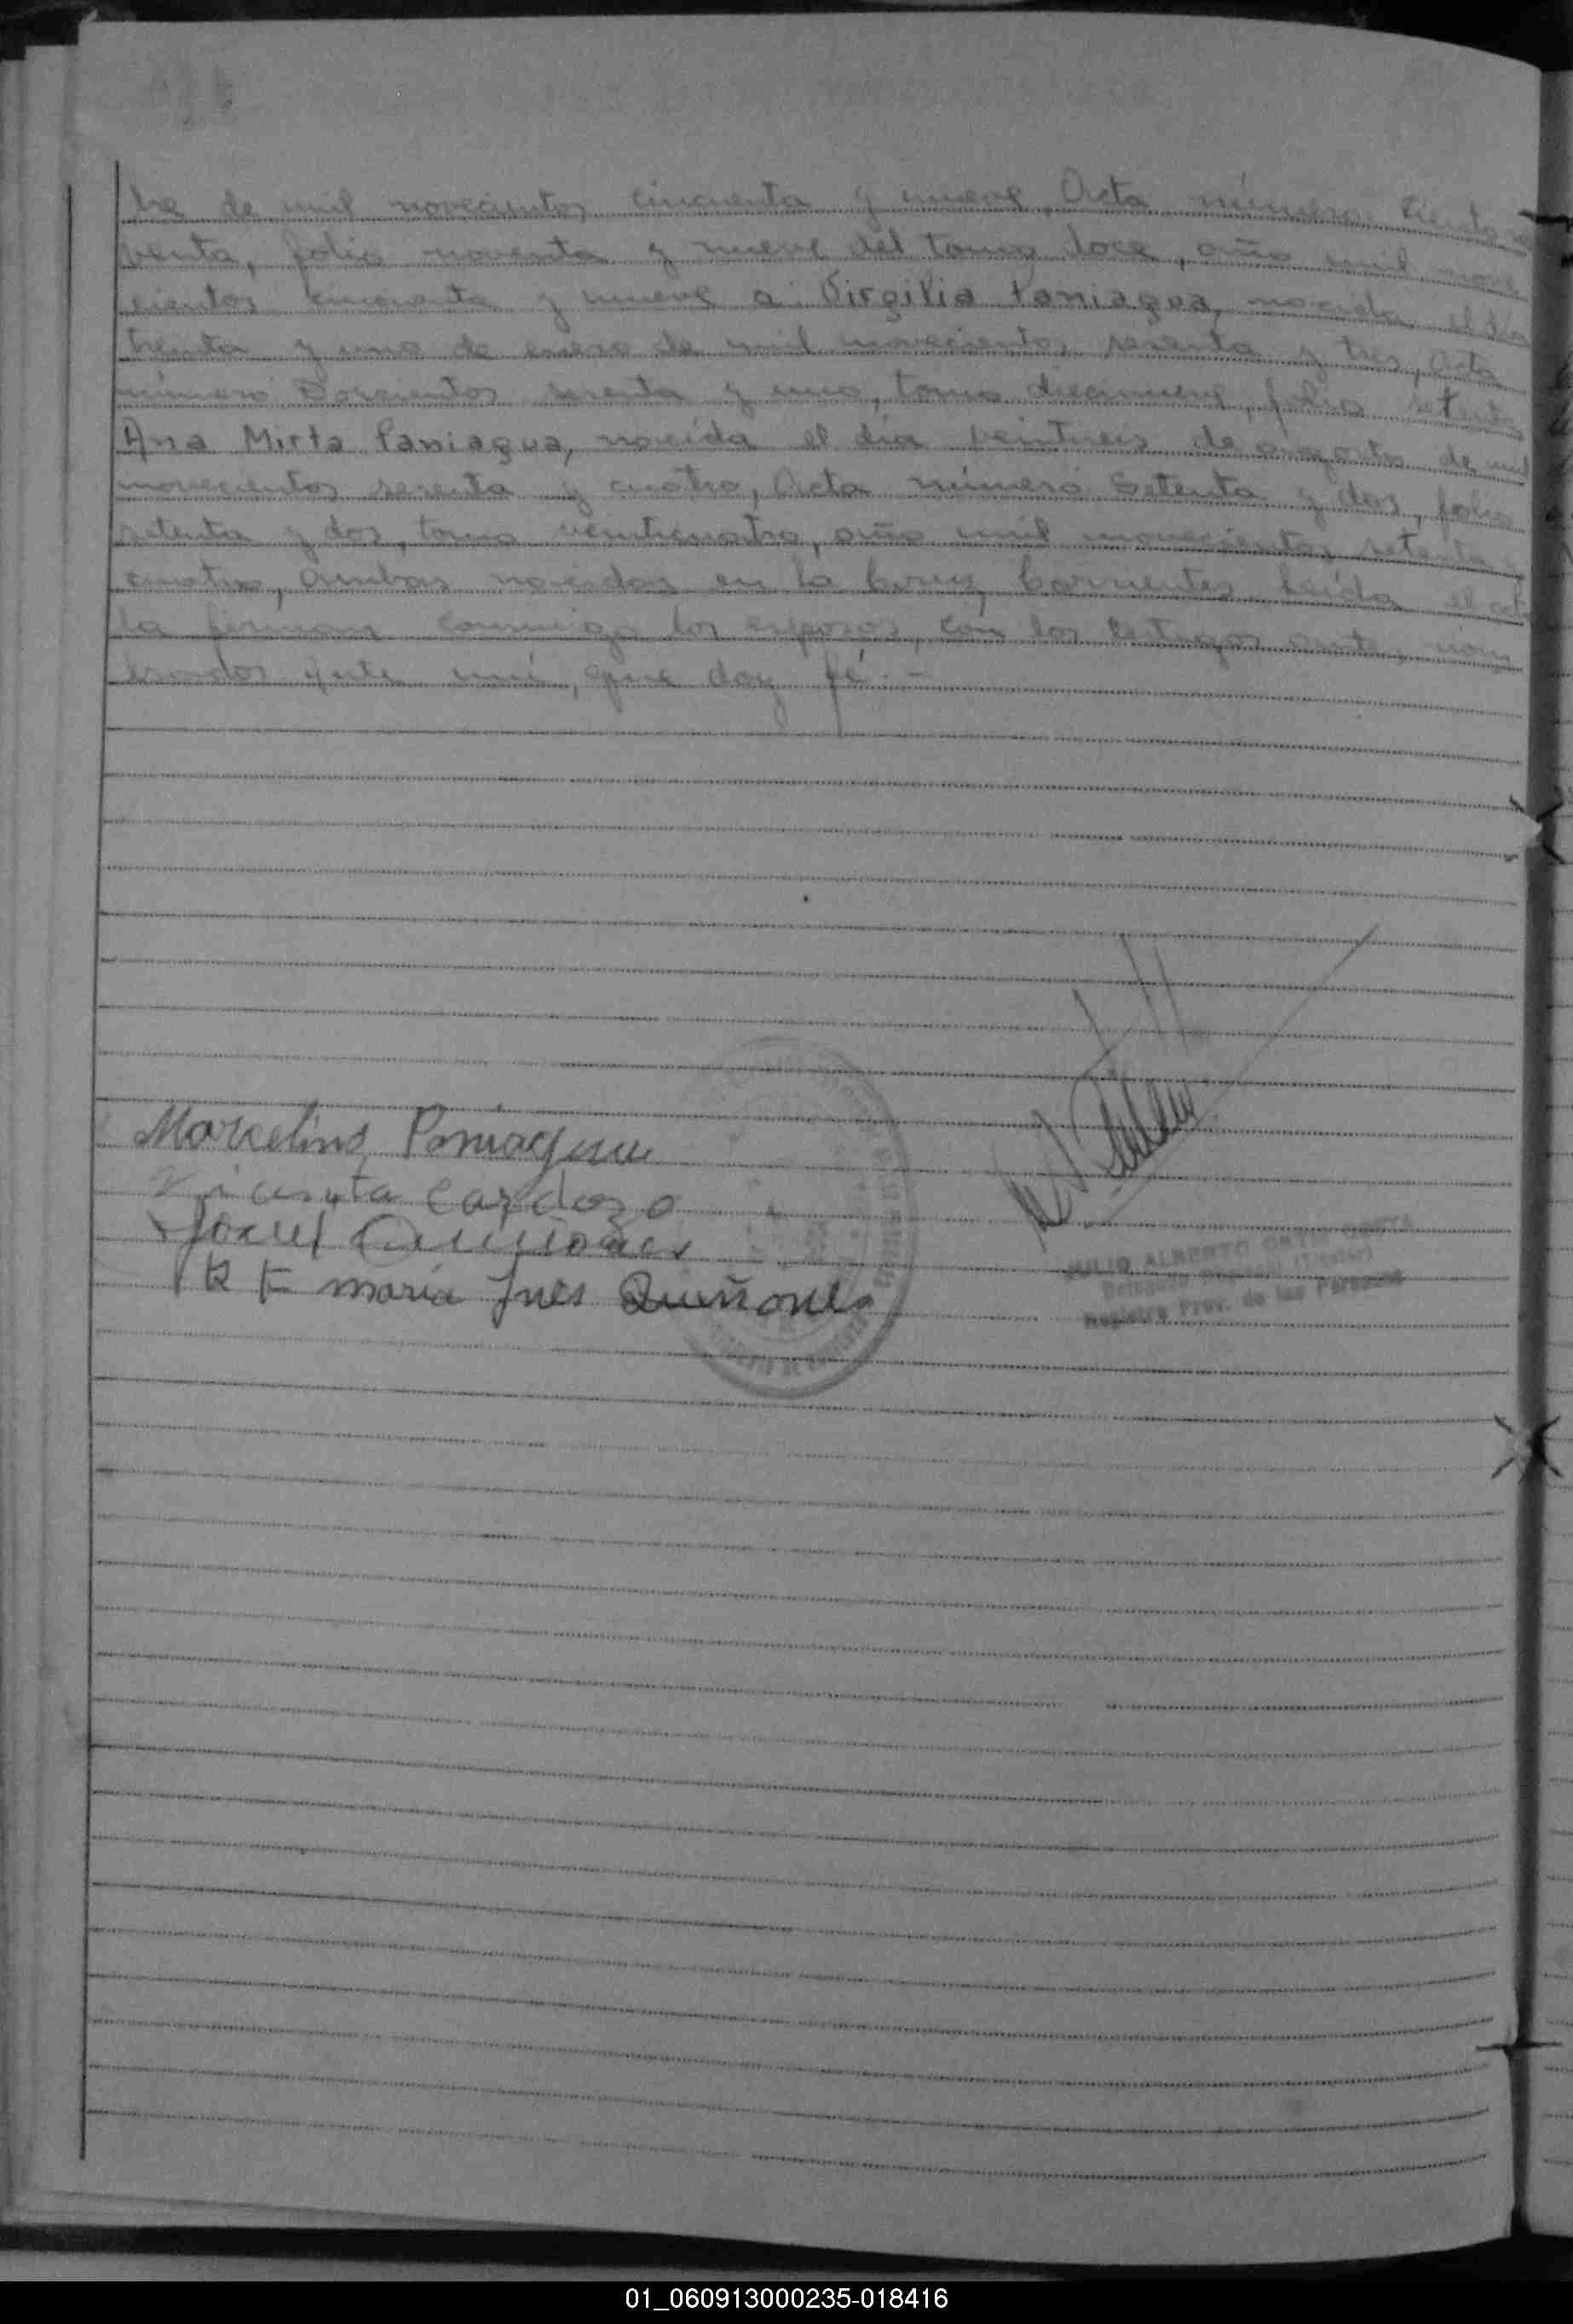 bre de mil novecientos cincuenta y nueve, Acta número ciento no
venta, folio noventa y nueve del tomo doce, año mil nove
cientos cincuenta y nueve a: Virgilia Paniagua, nacida el día
treinta y uno de enero de mil novecientos sesenta y tres, Acta
número Doscientos sesenta y uno, tomo diecinueve, folio setenta
Ana Mirta Paniagua, nacida el día veintiseis de agosto de mil
novecientos sesenta y cuatro, Acta número Setenta y dos, folio
setenta y dos, tomo veinticuatro, año mil novecientos setenta y
cuatro, ambas nacidas en la Cruz, Corrientes. Leída el acta
la firman conmigo los esposos, con los testigos ante nom
brados y ante mí, que doy fé.-
Marcelino Paniagua
Vicenta Cardozo
Quiñones
JULIO ALBERTO ORTIZ
R E maria Ines Quiñones
Registro Prov. de las Personas
01_060913000235-018416